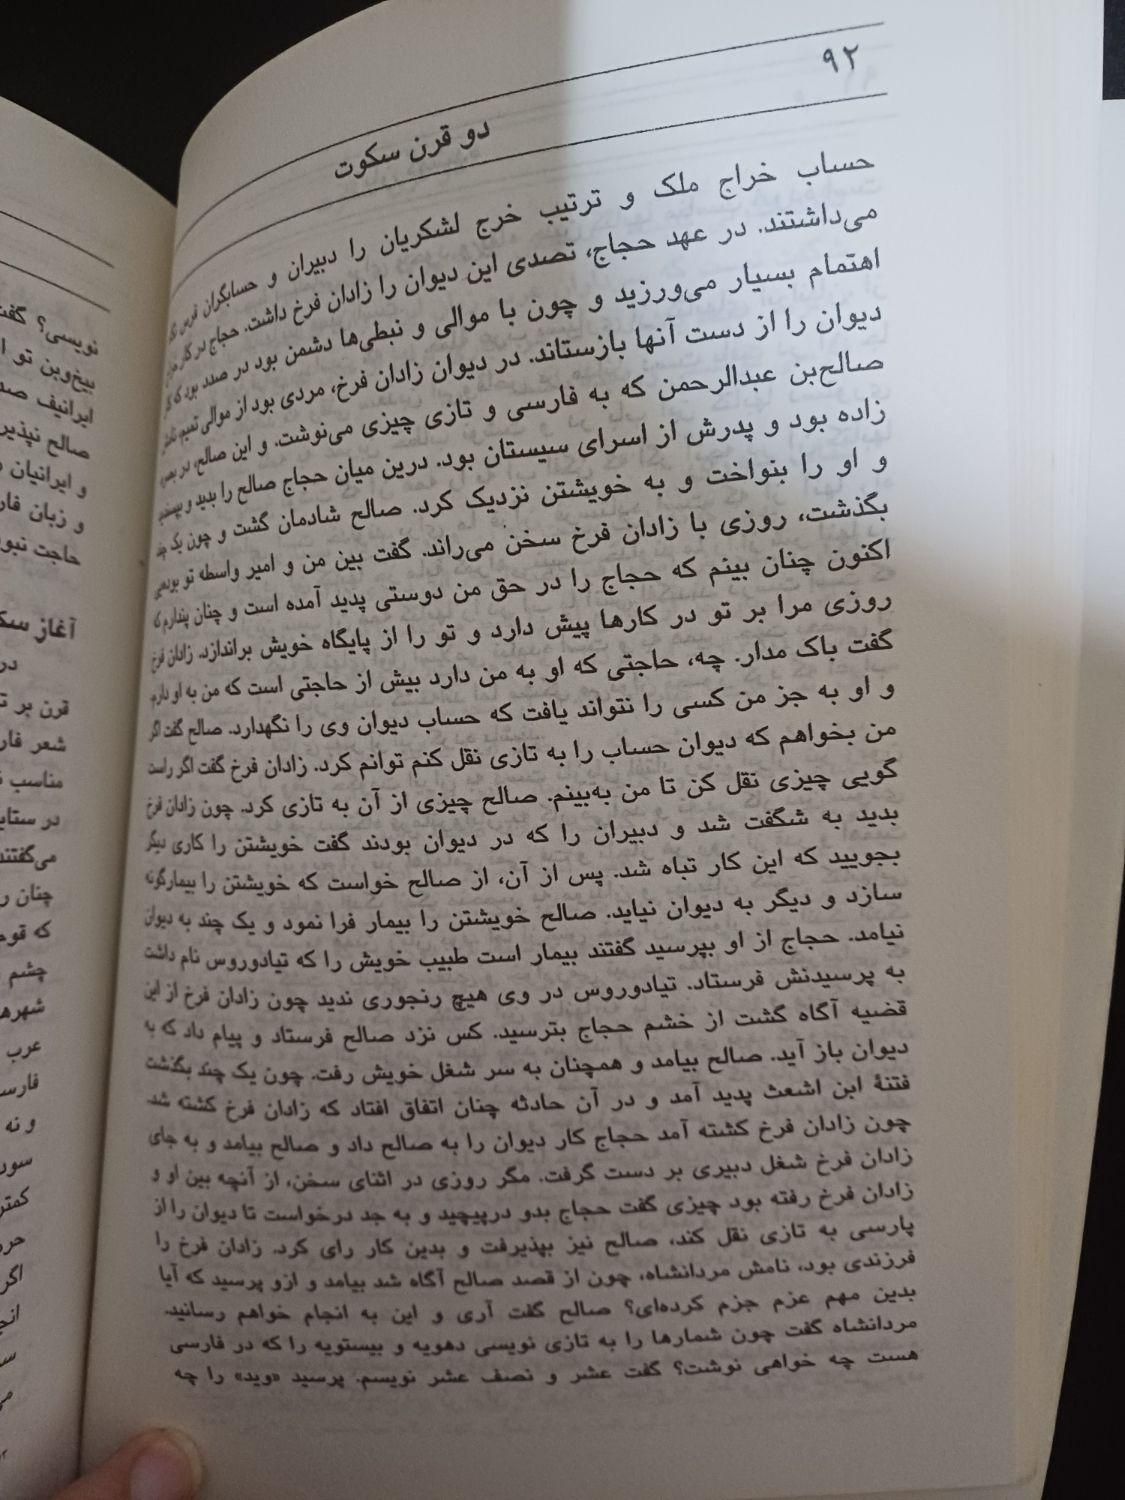 ۹۲
دو قرن سکوت
حساب خراج ملک و ترتیب خرج لشکریان را دبیران و حسابگران فرس نگاه
می‌داشتند. در عهد حجاج، تصدی این دیوان را زادان فرخ داشت. حجاج در کار
اهتمام بسیار می‌ورزید و چون با موالی و نبطی‌ها دشمن بود در صدد بود که کار
دیوان را از دست آنها بازستاند. در دیوان زادان فرخ، مردی بود از موالی تمیم نامش
صالح‌بن عبدالرحمن که به فارسی و تازی چیزی می‌نوشت. و این صالح، در بصره
زاده بود و پدرش از اسرای سیستان بود. درین میان حجاج صالح را بدید و بپسندید
و او را بنواخت و به خویشتن نزدیک کرد. صالح شادمان گشت و چون یک چند
بگذشت، روزی با زادان فرخ سخن می‌راند. گفت بین من و امیر واسطه تو بودهی
اکنون چنان بینم که حجاج را در حق من دوستی پدید آمده است و چنان پندارم که
روزی مرا بر تو در کارها پیش دارد و تو را از پایگاه خویش براندازد. زادان فرخ
گفت باک مدار. چه، حاجتی که او به من دارد بیش از حاجتی است که من به او دارم.
و او به جز من کسی را نتواند یافت که حساب دیوان وی را نگهدارد. صالح گفت اگر
من بخواهم که دیوان حساب را به تازی نقل کنم توانم کرد. زادان فرخ گفت اگر راست
گویی چیزی نقل کن تا من به‌بینم. صالح چیزی از آن به تازی کرد. چون زادان فرخ
بدید به شگفت شد و دبیران را که در دیوان بودند گفت خویشتن را کاری دیگر
بجویید که این کار تباه شد. پس از آن، از صالح خواست که خویشتن را بیمارگونه
سازد و دیگر به دیوان نیاید. صالح خویشتن را بیمار فرا نمود و یک چند به دیوان
نیامد. حجاج از او بپرسید گفتند بیمار است طبیب خویش را که تیادوروس نام داشت
به پرسیدنش فرستاد. تیادوروس در وی هیچ رنجوری ندید چون زادان فرخ از این
قضیه آگاه گشت از خشم حجاج بترسید. کس نزد صالح فرستاد و پیام داد که به
دیوان باز آید. صالح بیامد و همچنان به سر شغل خویش رفت. چون یک چند بگذشت
فتنهٔ ابن اشعث پدید آمد و در آن حادثه چنان اتفاق افتاد که زادان فرخ کشته شد.
چون زادان فرخ کشته آمد حجاج کار دیوان را به صالح داد و صالح بیامد و به جای
زادان فرخ شغل دبیری بر دست گرفت. مگر روزی در اثنای سخن، از آنچه بین او و
زادان فرخ رفته بود چیزی گفت حجاج بدو درپیچید و به جد درخواست تا دیوان را از
پارسی به تازی نقل کند، صالح نیز بپذیرفت و بدین کار رای کرد. زادان فرخ را
فرزندی بود، نامش مردانشاه، چون از قصد صالح آگاه شد بیامد و ازو پرسید که آیا
بدین مهم عزم جزم کرده‌ای؟ صالح گفت آری و این به انجام خواهم رسانید.
مردانشاه گفت چون شمارها را به تازی نویسی دهویه و بیستویه را که در فارسی
هست چه خواهی نوشت؟ گفت عشر و نصف عشر نویسم. پرسید «وید» را چه
نویسی؟
بیخ‌وبن تو
صالح نپذیر
و ایرانیان
و زبان
حاجت
آغاز
در
قرن بر
شعر
مناسب
در
می‌گفتند
چنان
که
چشم
عرب
و نه
اگر